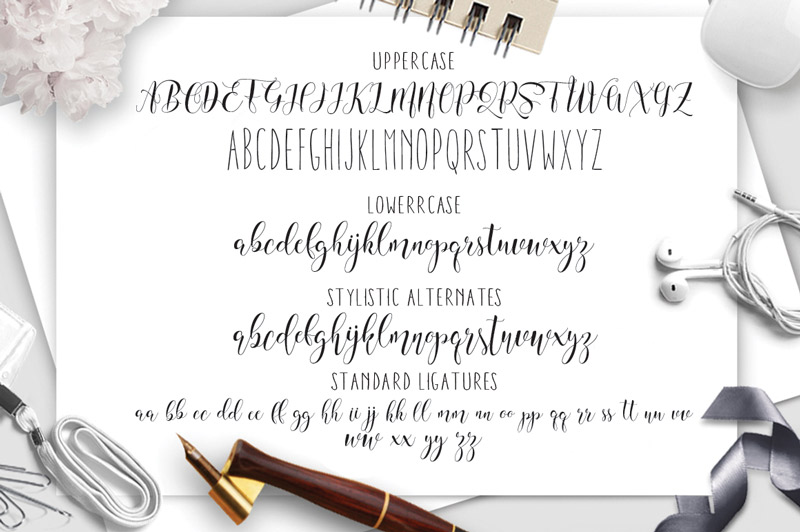 UPPERCASE
ABCDEFGHIJKLMNOPQRSTUVWXYZ
ABCDEFGHIJKLMNOPQRSTUVWXYZ
LOWERRCASE
abcdefghijklmnopqrstuvwxyz
STYLISTIC ALTERNATES
abcdefghijklmnopqrstuvwxyz
STANDARD LIGATURES
aa bb cc dd ee ff gg hh ii jj kk ll mm nn oo pp qq rr ss tt uu vv
ww xx yy zz